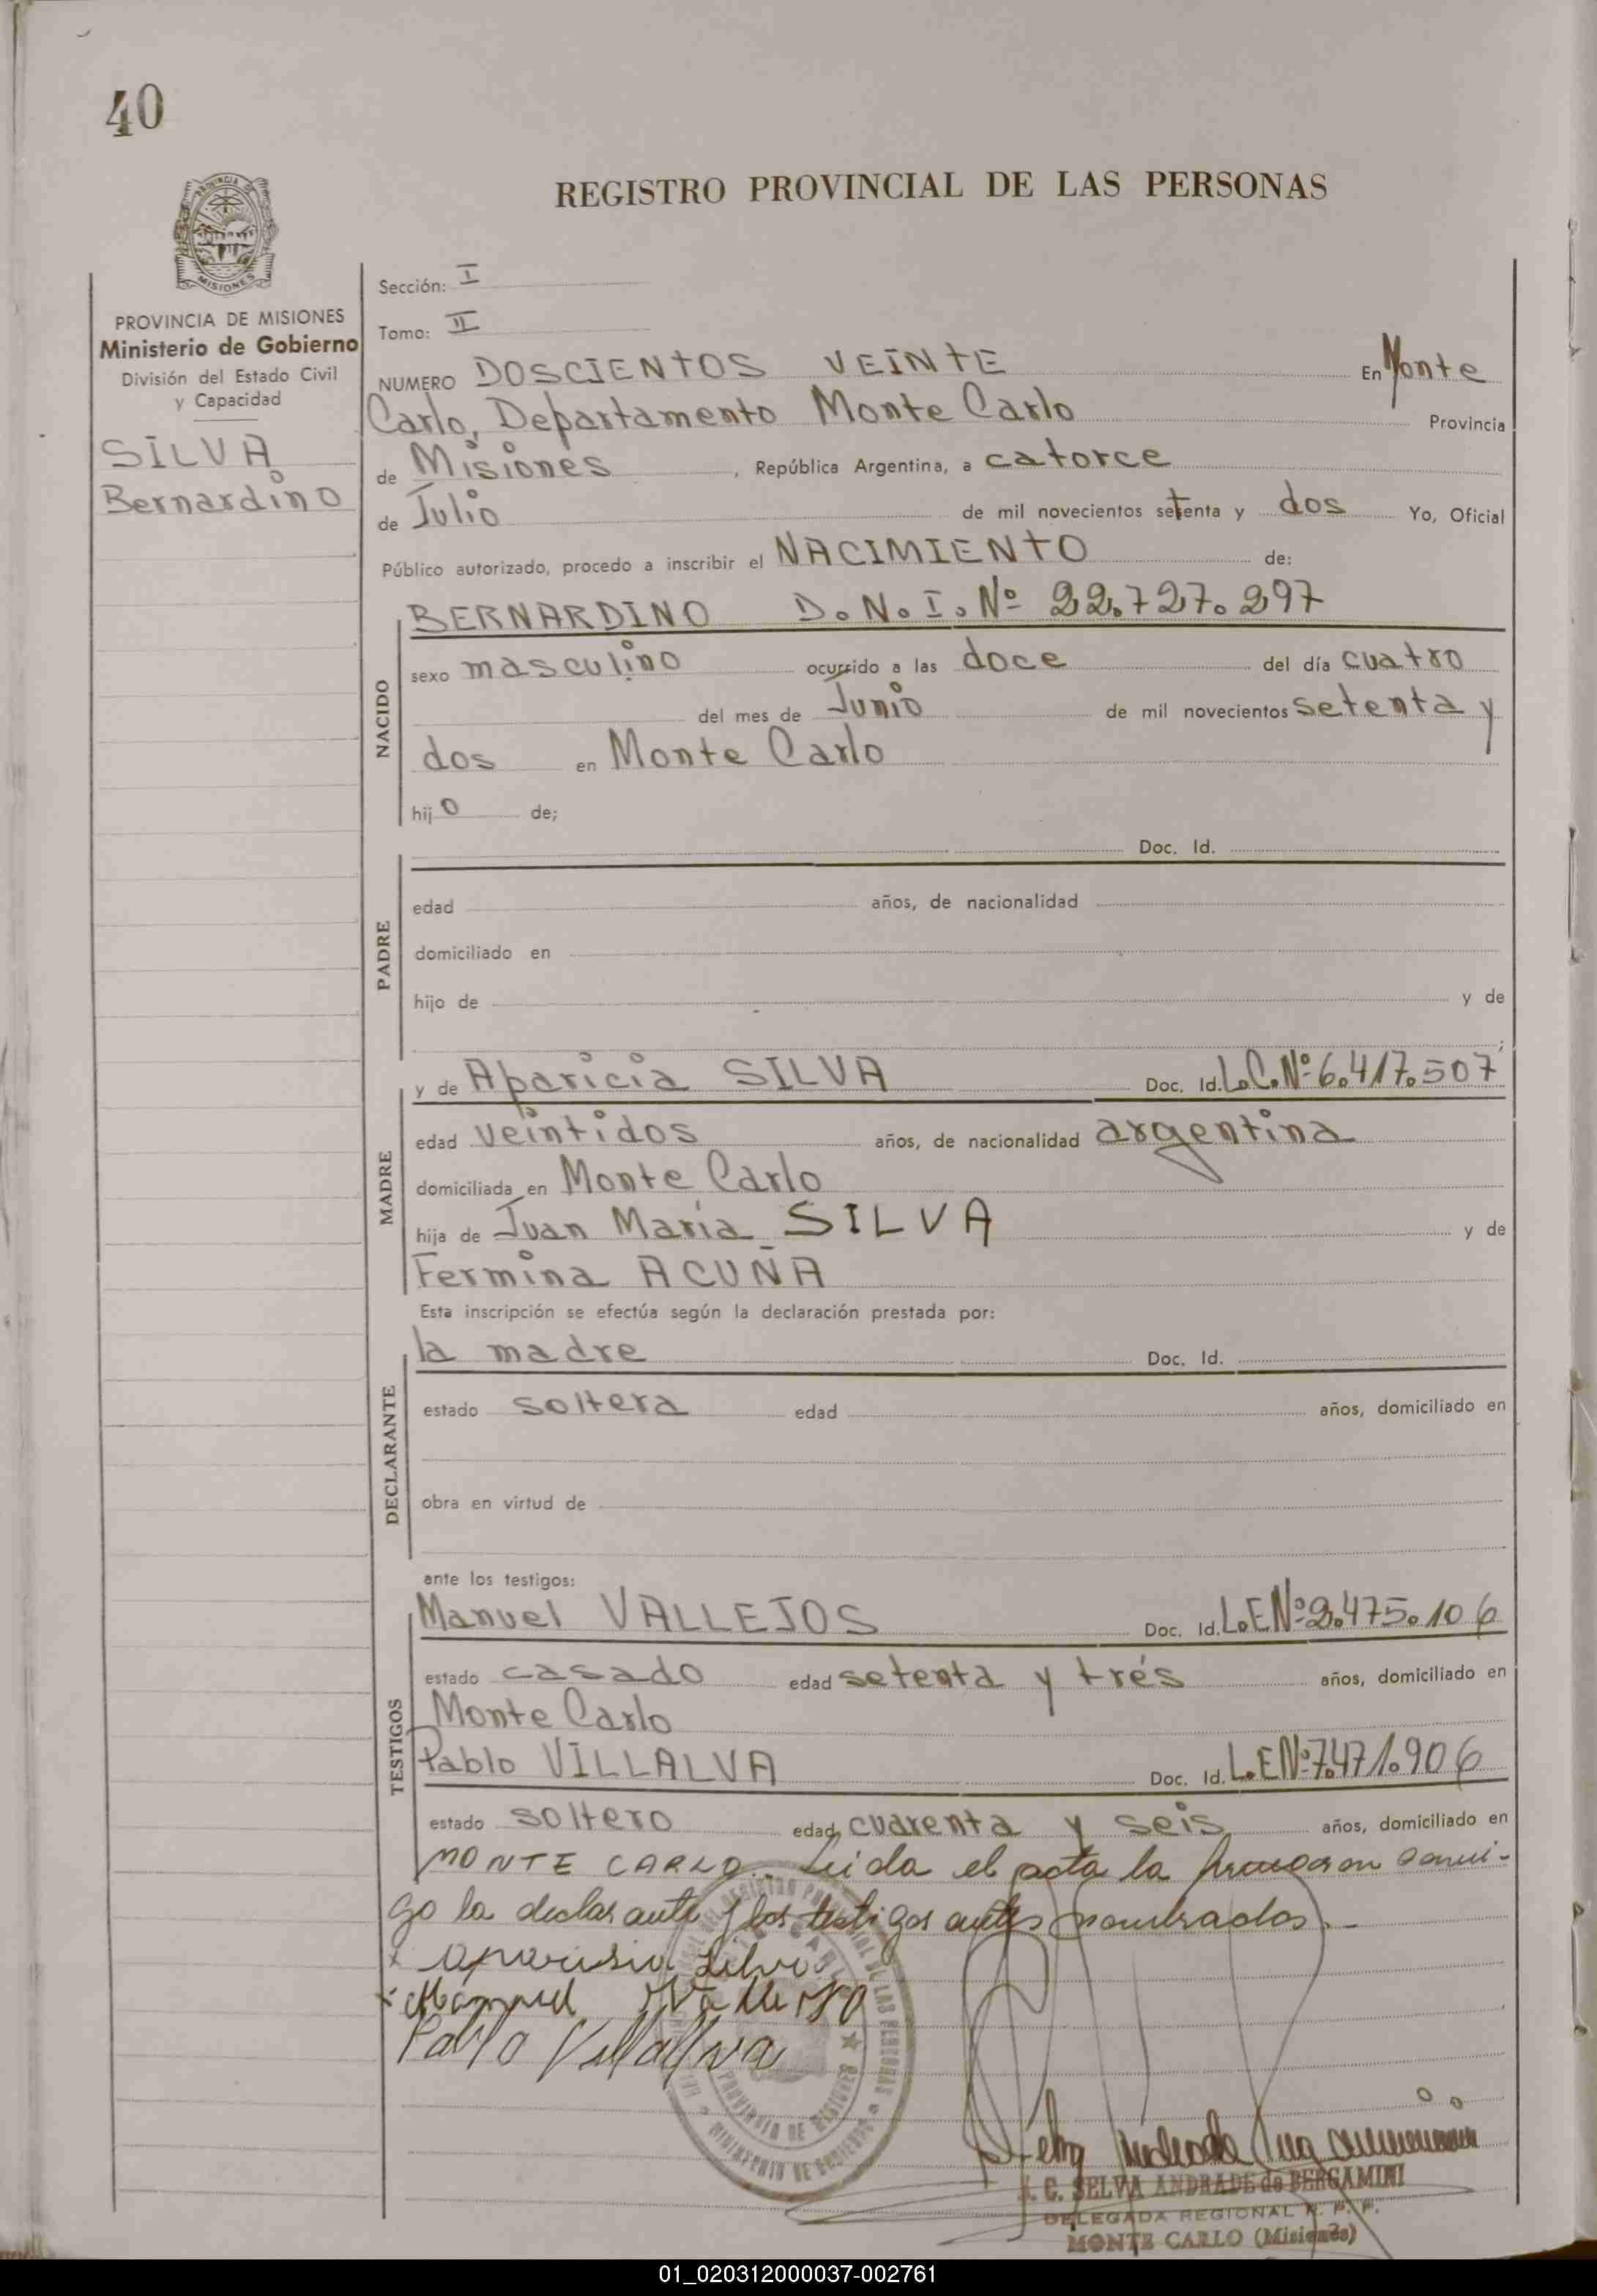 40
REGISTRO PROVINCIAL DE LAS PERSONAS
MISIONES
PROVINCIA DE MISIONES
Ministerio de Gobierno
División del Estado Civil
y Capacidad
SILVA
Bernardino
Sección: I
Tomo: II
NUMERO DOSCIENTOS VEINTE En Monte
Carlo, Departamento Monte Carlo Provincia
de Misiones, República Argentina, a catorce
de Julio de mil novecientos setenta y dos Yo, Oficial
Público autorizado, procedo a inscribir el NACIMIENTO de:
NACIDO
BERNARDINO D.N.I. Nº 22.727.297
sexo masculino ocurrido a las doce del día cuatro
del mes de Junio de mil novecientos setenta y
dos en Monte Carlo
hijo de;
PADRE
Doc. Id.
edad años, de nacionalidad
domiciliado en
hijo de y de
;
MADRE
y de Aparicia SILVA Doc. Id. L.C.Nº 6.417.507
edad veintidos años, de nacionalidad argentina
domiciliada en Monte Carlo
hija de Juan María SILVA y de
Fermina ACUÑA
Esta inscripción se efectúa según la declaración prestada por:
DECLARANTE
la madre Doc. Id.
estado soltera edad años, domiciliado en
obra en virtud de
ante los testigos:
TESTIGOS
Manuel VALLEJOS Doc. Id. L.E Nº 2.475.106
estado casado edad setenta y trés años, domiciliado en
Monte Carlo
Pablo VILLALVA Doc. Id. L.E Nº 7.471.906
estado soltero edad cuarenta y seis años, domiciliado en
MONTE CARLO. Leida el acta la firmaron conmi-
go la declarante y los testigos antes nombrados.-
x aparisia Silva
x Manuel
Pablo Villalva
PROVINCIA DE MISIONES
MINISTERIO DE GOBIERNO
C. SELVA ANDRADE de BERGAMINI
DELEGADA REGIONAL R. P. P.
MONTE CARLO (Misiones)
01_020312000037-002761